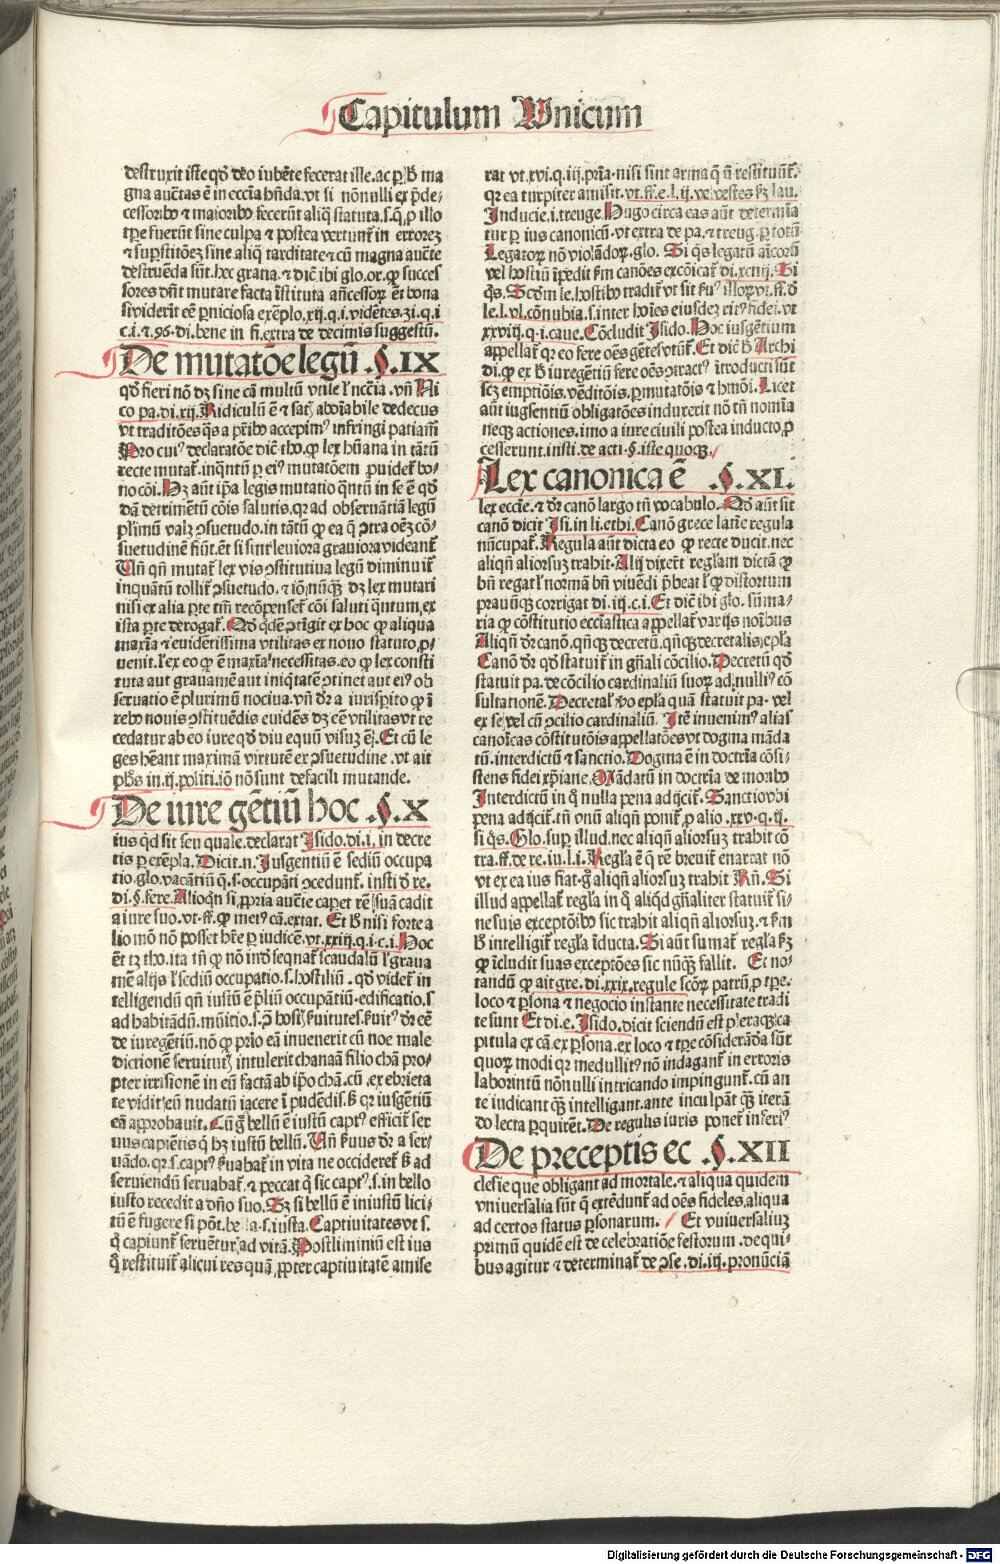 Capitulum Vnicum
destruxit iste qd' deo iubēte fecerat ille. ac ꝑ ħ ma
gna auctas ē in eccīa hñda. vt si nōnulli ex p̄de-
cessoribꝰ ⁊ maioribꝰ fecerūt aliq̄ statuta.s.q̄ ꝓ illo
tꝑe fuerūt sine culpa ⁊ postea vertunt̄ in errorez
⁊ suꝑstitōez sine aliq̄ tarditate ⁊ cū magna aucte
destruēda sūt. hec gratia. ⁊ dic̄ ibi glo. or. ꝙ succes
sores dn̄t mutare facta īstituta añcessoꝝ ēt bona
si viderīt eē ꝑniciosa exēplo. xij. q. i. vidētes. zi. q. i
c. i. ⁊ 96. di. bene in fi. extra de decimis suggestū.
De mutatōe legū §. IX
qd' fieri nō dz sine cā multū vtile ł nccīa. vñ Ni
co pa. di. xij. Ridiculū ē ⁊ satꝭ aboīabile dedecus
vt traditōes q̄s a pr̄ibꝰ accepimꝰ infringi patiam̄
Pro cuiꝰ declaratōe dic̄ tho. ꝙ lex hūana in tātū
recte mutat̄. inq̄ntū ꝑ eiꝰ mutatōem ꝓuidet̄ bo-
no cōi. Hz aūt ip̄a legis mutatio q̄ntū in se ē qd'
dā detrimētū cōis salutis. qr ad obseruātiā legū
plīmū valz ꝯsuetudo. in tātū ꝙ ea q̄ ꝯtra oēz cō-
suetudinē fiūt. ēt si sint leuiora grauiora videant̄
Vñ qñ mutat̄ lex vis ꝯstitutiua legū diminuit̄
inquātū tollit̄ ꝯsuetudo. ⁊ iō nūq̄ꝫ dz lex mutari
nisi ex alia ꝑte tm̄ recōpenset̄ cōi saluti q̄ntum, ex
ista ꝑte derogat̄. Qd' q̄dē ꝯtīgit ex hoc ꝙ aliqua
maxīa ⁊ euidētissima vtilitas ex nouo statuto ꝓ-
uenit. ł ex eo ꝙ ē maxīa necessitas. eo ꝙ lex consti
tuta aut grauamē aut iniq̄tatē ꝯtinet aut eiꝰ ob
seruatio ē plurimū nociua. vñ dr̄ a iurisꝑito ꝙ ī
rebꝰ nouis ꝯstituēdis euidēs dz eē vtilitas vt re
cedatur ab eo iure qd' diu equū visuz ē. Et cū le
ges hēant maximā virtutē ex ꝯsuetudine. vt ait
ph̄s in. ij. politi. iō nō sunt defacili mutande.
De iure gētiū hoc §. X
ius q̄d sit seu quale. declarat Isido. di. i. in decre
tis ꝑ exēpla. Dicit. n. Iusgentiū ē sediū occupa
tio. glo. vacātiū q̄. s. occupāti ꝯcedunt̄. insti. d' re.
di. §. fere. Alioqn̄ si ꝓpria aucte capet rē suā cadit
a iure suo. vt. ff. ꝙ metꝰ cā. extat. Et ħ nisi forte a
lio mō nō posset hr̄e ꝑ iudicē. vt. xxiij. q. i. c. i. Hoc
ēt tꝫ tho. ita tn̄ ꝙ nō inrd' seqnat̄ scandalū ł graua
mē alijs ł sediū occupatio. s. hostiliū. qd' videt̄ in
telligendū qñ iustū ē p̄liū occupātiū. edificatio. s
ad habitādū. mūitio. s. ꝓ hosti. ẜuitutes. ẜuitꝰ dr̄ eē
de iuregētiū. nō ꝙ prīo eā inuenerit cū noe male
dictionē seruitutꝭ intulerit chanaā filio chā pro-
pter irrisionē in eū factā ab ip̄o chā. cū. ex ebrieta
te vidit eū nudatū iacere ī pudēdis. ħ qr iusgētiū
eā approbauit. Cū ḡ bellū ē iustū captꝰ efficit̄ ser
uus capiētis q̄ hꝫ iustū bellū. Vñ ẜuus dr̄ a ser-
uādo. qr. s. captꝰ ẜuabat̄ in vita ne occideret̄ ħ ad
seruiendū seruabat̄. ⁊ peccat q̄ sic captꝰ. s. in bello
iusto recedit a dño suo. Sz si bellū ē iniustū lici-
tū ē fugere si pōt. bella. s. iusta. Captiuitates vt s.
q̄ capiunt̄ seruētur ad vitā. Postliminiū est ius
q̄ restituit̄ alicui res quā ꝓpter captiuitatē amise
rat vt. xvi. q. iij. prīa. nisi sint arma q̄ nō restituūt̄.
qr ea turpiter amisit. vt. ff. e. l. ij. ve vestes ẜꝫ lau.
Inducie. i. treuge. Hugo circa eas aūt determīa
tur ꝑ ius canonicū. vt extra de pa. ⁊ treug. ꝑ totū
Legatoꝝ nō violādoꝝ. glo. Si q̄s legatū aīcorū
vel hostiū īpedit ẜm canōes excōicat̄ di. xciiij. Si
q̄s. Scd'm le. hostibꝰ tradit̄ vt sit ẜuꝰ illoꝝ vt. ff. d'
le. l. vl. cōnubia. s. inter hoīes eiusdez ritꝰ fidei. vt
xxviij. q. i. caue. Cōcludit Isido. Hoc iusgētium
appellat̄ qr eo fere oēs gētes vtūt̄. Et dic̄ ħ Archi
di. ꝙ ex ħ iuregētiū fere oēs ꝯtractꝰ ītroducti sūt
scꝫ emptiōis, vēditōis, ꝑmutatōis ⁊ hmōi. Licet
aūt iusgentiū obligatōes indurerit nō tn̄ nomīa
neqꝫ actiones. imo a iure ciuili postea inducto. ꝓ
cesserunt. insti. de acti. §. iste quocꝫ.
Lex canonica ē §. XI.
lex eccīe. ⁊ dr̄ canō largo tn̄ vocabulo. Qd' aūt sit
canō dicit Isi. in li. ethi. Canō grece latīe regula
nūcupat̄. Regula aūt dicta eo ꝙ recte ducit. nec
aliqñ aliorsuz trahit. Alij dixer̄t regl̄am dictā ꝙ
bn̄ regat ł normā bn̄ viuēdi p̄beat ł ꝙ distortum
prauūqꝫ corrigat di. iij. c. i. Et dic̄ ibi glo. sūma-
ria ꝙ cōstitutio ecclīastica appellat̄ varijs noībus
Aliqñ dr̄ canō. qñqꝫ decretū. qñqꝫ decretalis, epl̄a
Canō dr̄ qd' statuit̄ in gn̄ali cōcilio. Decretū qd'
statuit pa. de cōcilio cardinaliū suoꝝ ad nulliꝰ cō
sultationē. Decretal̄ ꝟo epl̄a quā statuit pa. vel
ex se vel cū ꝯcilio cardinaliū. Itē inuenimꝰ alias
canoīcas cōstitutōis appellatōes vt dogma māda
tū. interdictū ⁊ sanctio. Dogma ē in doctrīa cōsi-
stens fidei xp̄iane. Mādatū in doctrīa de moribꝰ
Interdictū in q̄ nulla pena adijcit̄. Sanctio vbi
pena adijcit̄. tn̄ vnū aliqñ ponit̄ ꝓ alio. xxv. q. ij.
si q̄s. Glo. suꝑ illud. nec aliqñ aliorsuz trahit cō
tra. ff. de re. iu. l. i. Regl̄a ē q̄ rē breuit̄ enarrat nō
vt ex ea ius fiat. ḡ aliqñ aliorsuz trahit Rn̄. Si
illud appellat̄ regl̄a in q̄ aliqd gn̄aliter statuit̄ si-
ne suis exceptōibꝰ sic trahit aliqñ aliorsuz. ⁊ ẜm
ħ intelligit̄ regl̄a īducta. Si aūt sumat̄ regl̄a ẜꝫ
ꝙ īcludit suas exceptōes sic nūqꝫ fallit. Et no-
tandū ꝙ ait gre. di. xxix. regule sc̄oꝝ patrū, ꝓ tꝑe.
loco ⁊ ꝑsona ⁊ negocio instante necessitate tradi
te sunt Et di. e. Isido. dicit sciendū est pleraqꝫ ca
pitula ex cā. ex ꝑsona. ex loco ⁊ tꝑe cōsiderāda sūt
quoꝝ modi qr medullitꝰ nō indagant̄ in erroris
laborintū nōnulli intricando impingunt̄. cū an
te iudicant q̄ꝫ intelligant. ante inculpāt q̄ꝫ iterā
do lecta ꝑquirēt. De regulis iuris ponet̄ inferiꝰ
De preceptis ec §. XII
clesie que obligant ad mortale. ⁊ aliqua quidem
vniuersalia sūt q̄ extēdunt̄ ad oēs fideles. aliqua
ad certos status ꝑsonarum. Et vniuersaliuz
primū quidē est de celebratiōe festorum. de qui-
bus agitur ⁊ determinat̄ de ꝯse. di. iij. pronūciā
Digitalisierung gefördert durch die Deutsche Forschungsgemeinschaft - DFG